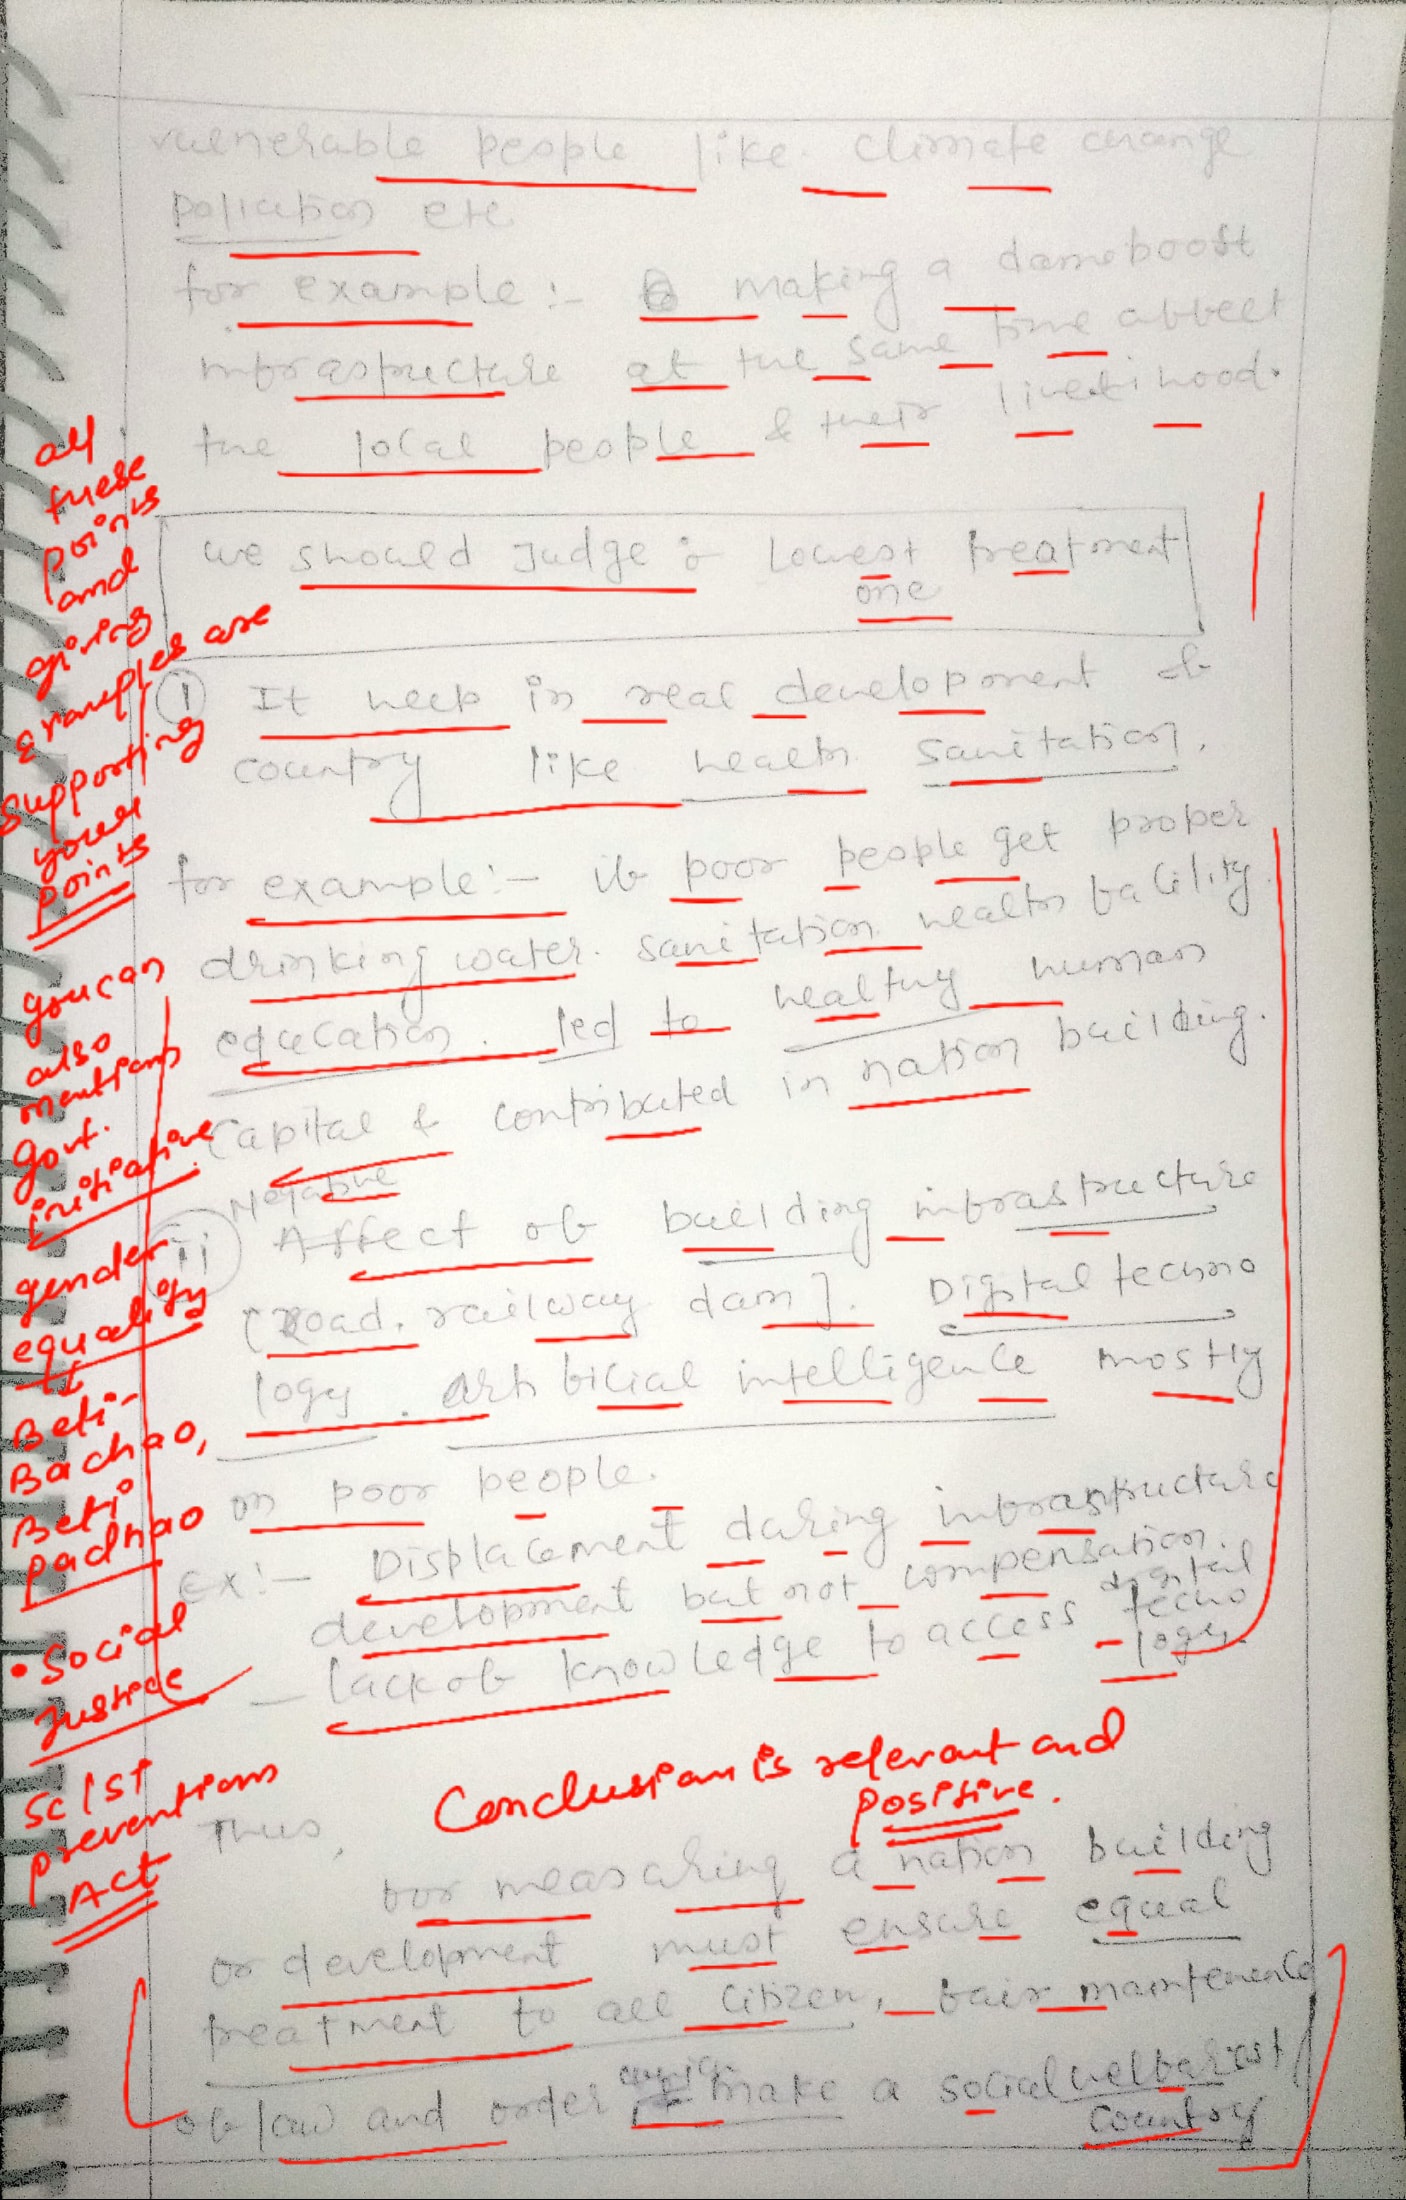 vulnerable people like climate change
pollution etc
for example :- making a dam boost
infrastructure at the same time affect
the local people & their livelihood.
we should Judge : Lowest treatment
one
(i) It help in real development of
country like health sanitation.
for example :- if poor people get proper
drinking water. sanitation health facility.
education. led to healthy human
capital & contributed in nation building.
Negative
(ii) Affect of building infrastructure
[road, railway dam]. Digital techno
logy. artificial intelligence mostly
on poor people.
Ex :- Displacement during infrastructure
development but not compensation.
- lack of knowledge to access digital
techno
logy.
Thus,
for measuring a nation building
or development must ensure equal
treatment to all citizen, fair maintenence
of law and order which make a social welfarist
country
all
these
points
and
giving
examples are
supporting
your
points
you can
also
mention
govt.
initiative
gender
equality
Beti-
Bachao,
Beti
padhao
• Social
Justice
SC/ST
prevention
Act
Conclusion is relevant and
positive.